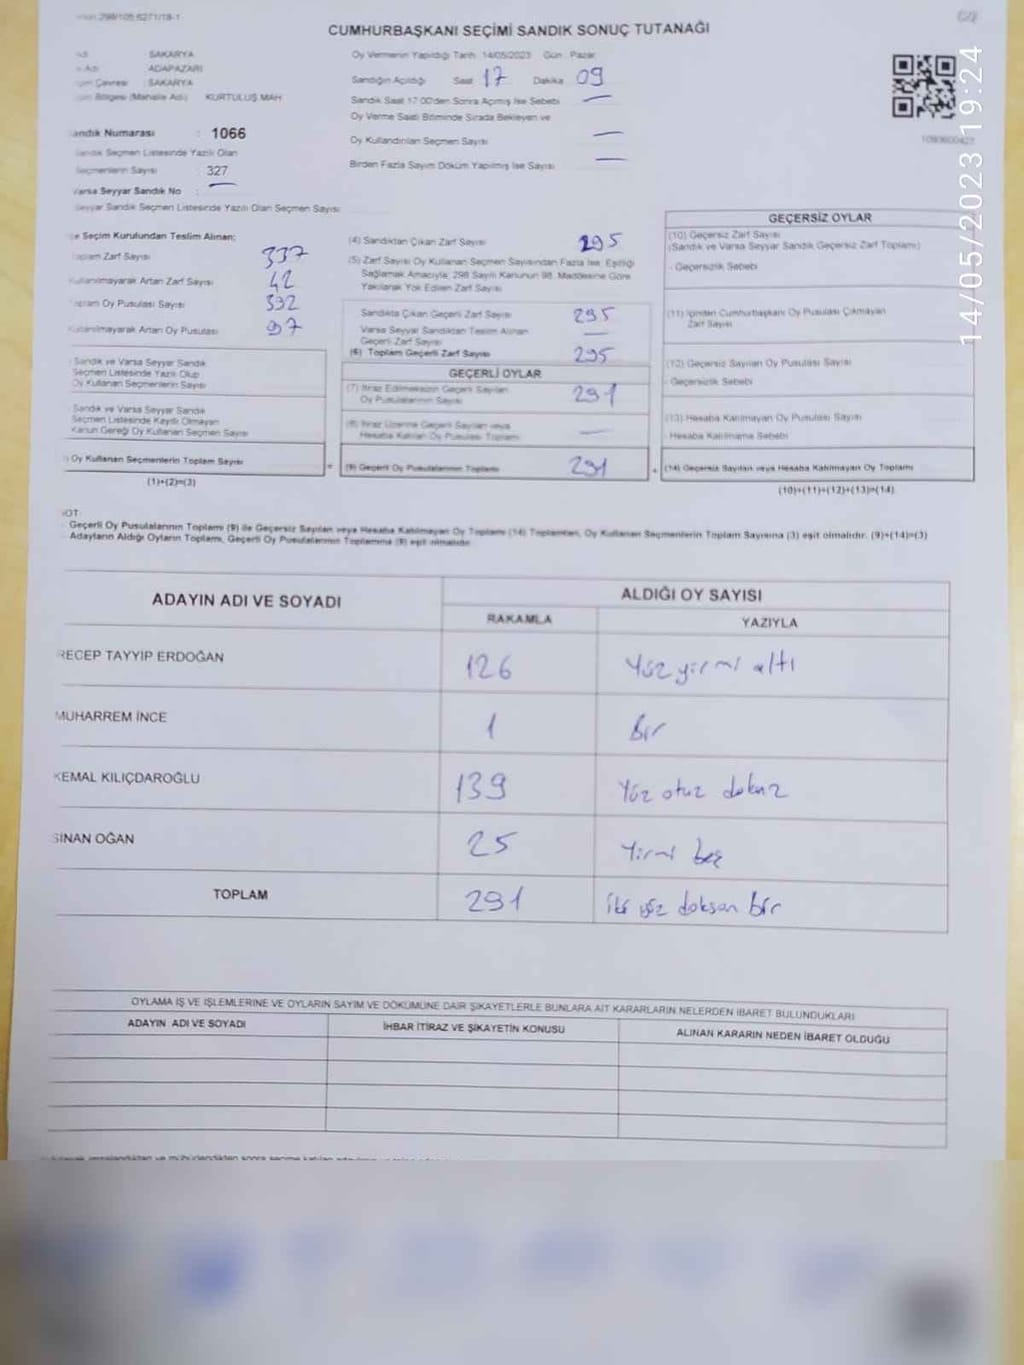 298/105,6271/18-1
CUMHURBAŞKANI SEÇİMİ SANDIK SONUÇ TUTANAĞI
SAKARYA
ADAPAZARI
Çevresi : SAKARYA
Bölgesi (Mahalle Adı) KURTULUŞ MAH
Sandık Numarası : 1066
Sandık Seçmen Listesinde Yazılı Olan
Seçmenlerin Sayısı : 327
Varsa Seyyar Sandık No : —
Seyyar Sandık Seçmen Listesinde Yazılı Olan Seçmen Sayısı
Oy Vermenin Yapıldığı Tarih 14/05/2023 Gün : Pazar
Sandığın Açıldığı Saat 17 Dakika 09
Sandık Saat 17:00'den Sonra Açılmış İse Sebebi —
Oy Verme Saati Bitiminde Sırada Bekleyen ve
Oy Kullandırılan Seçmen Sayısı —
Birden Fazla Sayım Döküm Yapılmış İse Sayısı —
14/05/2023 19:24
Seçim Kurulundan Teslim Alınan;
Toplam Zarf Sayısı 337
Kullanılmayarak Artan Zarf Sayısı 42
Toplam Oy Pusulası Sayısı
Kullanılmayarak Artan Oy Pusulası 97
Sandık ve Varsa Seyyar Sandık
Seçmen Listesinde Yazılı Olup
Oy Kullanan Seçmenlerin Sayısı
Sandık ve Varsa Seyyar Sandık
Seçmen Listesinde Kayıtlı Olmayan
Kanun Gereği Oy Kullanan Seçmen Sayısı
Oy Kullanan Seçmenlerin Toplam Sayısı
(1)+(2)=(3)
(4) Sandıktan Çıkan Zarf Sayısı 295
(5) Zarf Sayısı Oy Kullanan Seçmen Sayısından Fazla İse, Eşitliği
Sağlamak Amacıyla, 298 Sayılı Kanunun 98. Maddesine Göre
Yakılarak Yok Edilen Zarf Sayısı
Sandıkta Çıkan Geçerli Zarf Sayısı 295
Varsa Seyyar Sandıktan Teslim Alınan
Geçerli Zarf Sayısı —
(6) Toplam Geçerli Zarf Sayısı 295
GEÇERLİ OYLAR
(7) İtiraz Edilmeksizin Geçerli Sayılan
Oy Pusulalarının Sayısı 291
(8) İtiraz Üzerine Geçerli Sayılan veya
Hesaba Katılan Oy Pusulası Toplamı —
(9) Geçerli Oy Pusulalarının Toplamı 291
GEÇERSİZ OYLAR
(10) Geçersiz Zarf Sayısı
(Sandık ve Varsa Seyyar Sandık Geçersiz Zarf Toplamı)
- Geçersizlik Sebebi
(11) İçinden Cumhurbaşkanı Oy Pusulası Çıkmayan
Zarf Sayısı
(12) Geçersiz Sayılan Oy Pusulası Sayısı
- Geçersizlik Sebebi
(13) Hesaba Katılmayan Oy Pusulası Sayısı
- Hesaba Katılmama Sebebi
(14) Geçersiz Sayılan veya Hesaba Katılmayan Oy Toplamı
(10)+(11)+(12)+(13)=(14)
NOT:
Geçerli Oy Pusulalarının Toplamı (9) ile Geçersiz Sayılan veya Hesaba Katılmayan Oy Toplamı (14) Toplamları, Oy Kullanan Seçmenlerin Toplam Sayısına (3) eşit olmalıdır. (9)+(14)=(3)
Adayların Aldığı Oyların Toplamı, Geçerli Oy Pusulalarının Toplamına (9) eşit olmalıdır.
ADAYIN ADI VE SOYADI ALDIĞI OY SAYISI
RAKAMLA YAZIYLA
RECEP TAYYIP ERDOĞAN 126 Yüz yirmi altı
MUHARREM İNCE 1 bir
KEMAL KILIÇDAROĞLU 139 Yüz otuz dokuz
SİNAN OĞAN 25 Yirmi beş
TOPLAM 291 iki yüz doksan bir
OYLAMA İŞ VE İŞLEMLERİNE VE OYLARIN SAYIM VE DÖKÜMÜNE DAİR ŞİKAYETLERLE BUNLARA AİT KARARLARIN NELERDEN İBARET BULUNDUKLARI
ADAYIN ADI VE SOYADI İHBAR İTİRAZ VE ŞİKAYETİN KONUSU ALINAN KARARIN NEDEN İBARET OLDUĞU